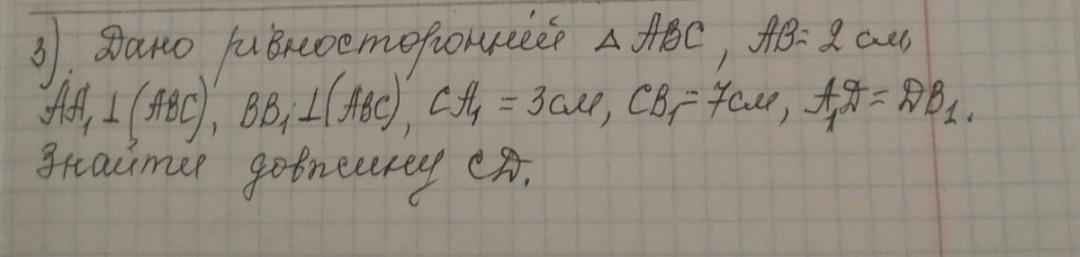 3). Дано рівносторонній △ ABC, AB = 2 см,
AA₁ ⊥ (ABC), BB₁ ⊥ (ABC), CA₁ = 3 см, CB₁ = 7 см, A₁D = DB₁.
Знайти довжину CD.